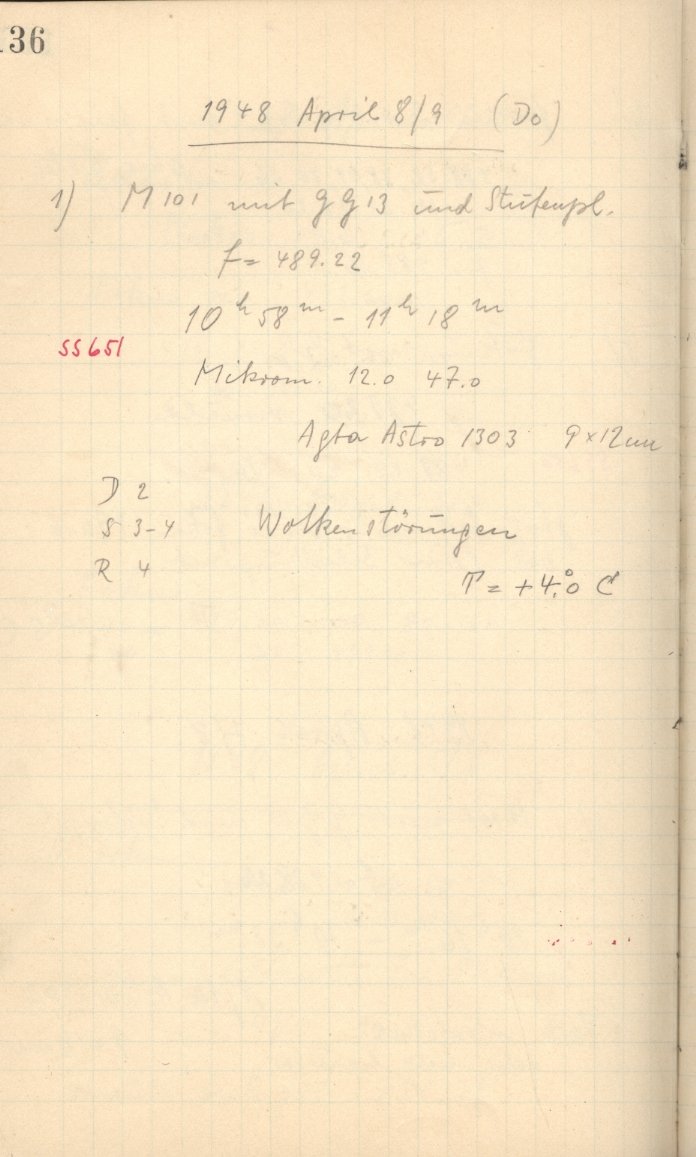 136
1948 April 8/9 (Do)
1) M 101 mit GG 13 und Stufenpl.
f = 489.22
10 h 58 m - 11 h 18 m
SS651
Mikrom. 12.0 47.0
Agfa Astro 1303 9×12 cm
D 2
S 3-4 Wolkenstörungen
R 4
T = +4.°0 C